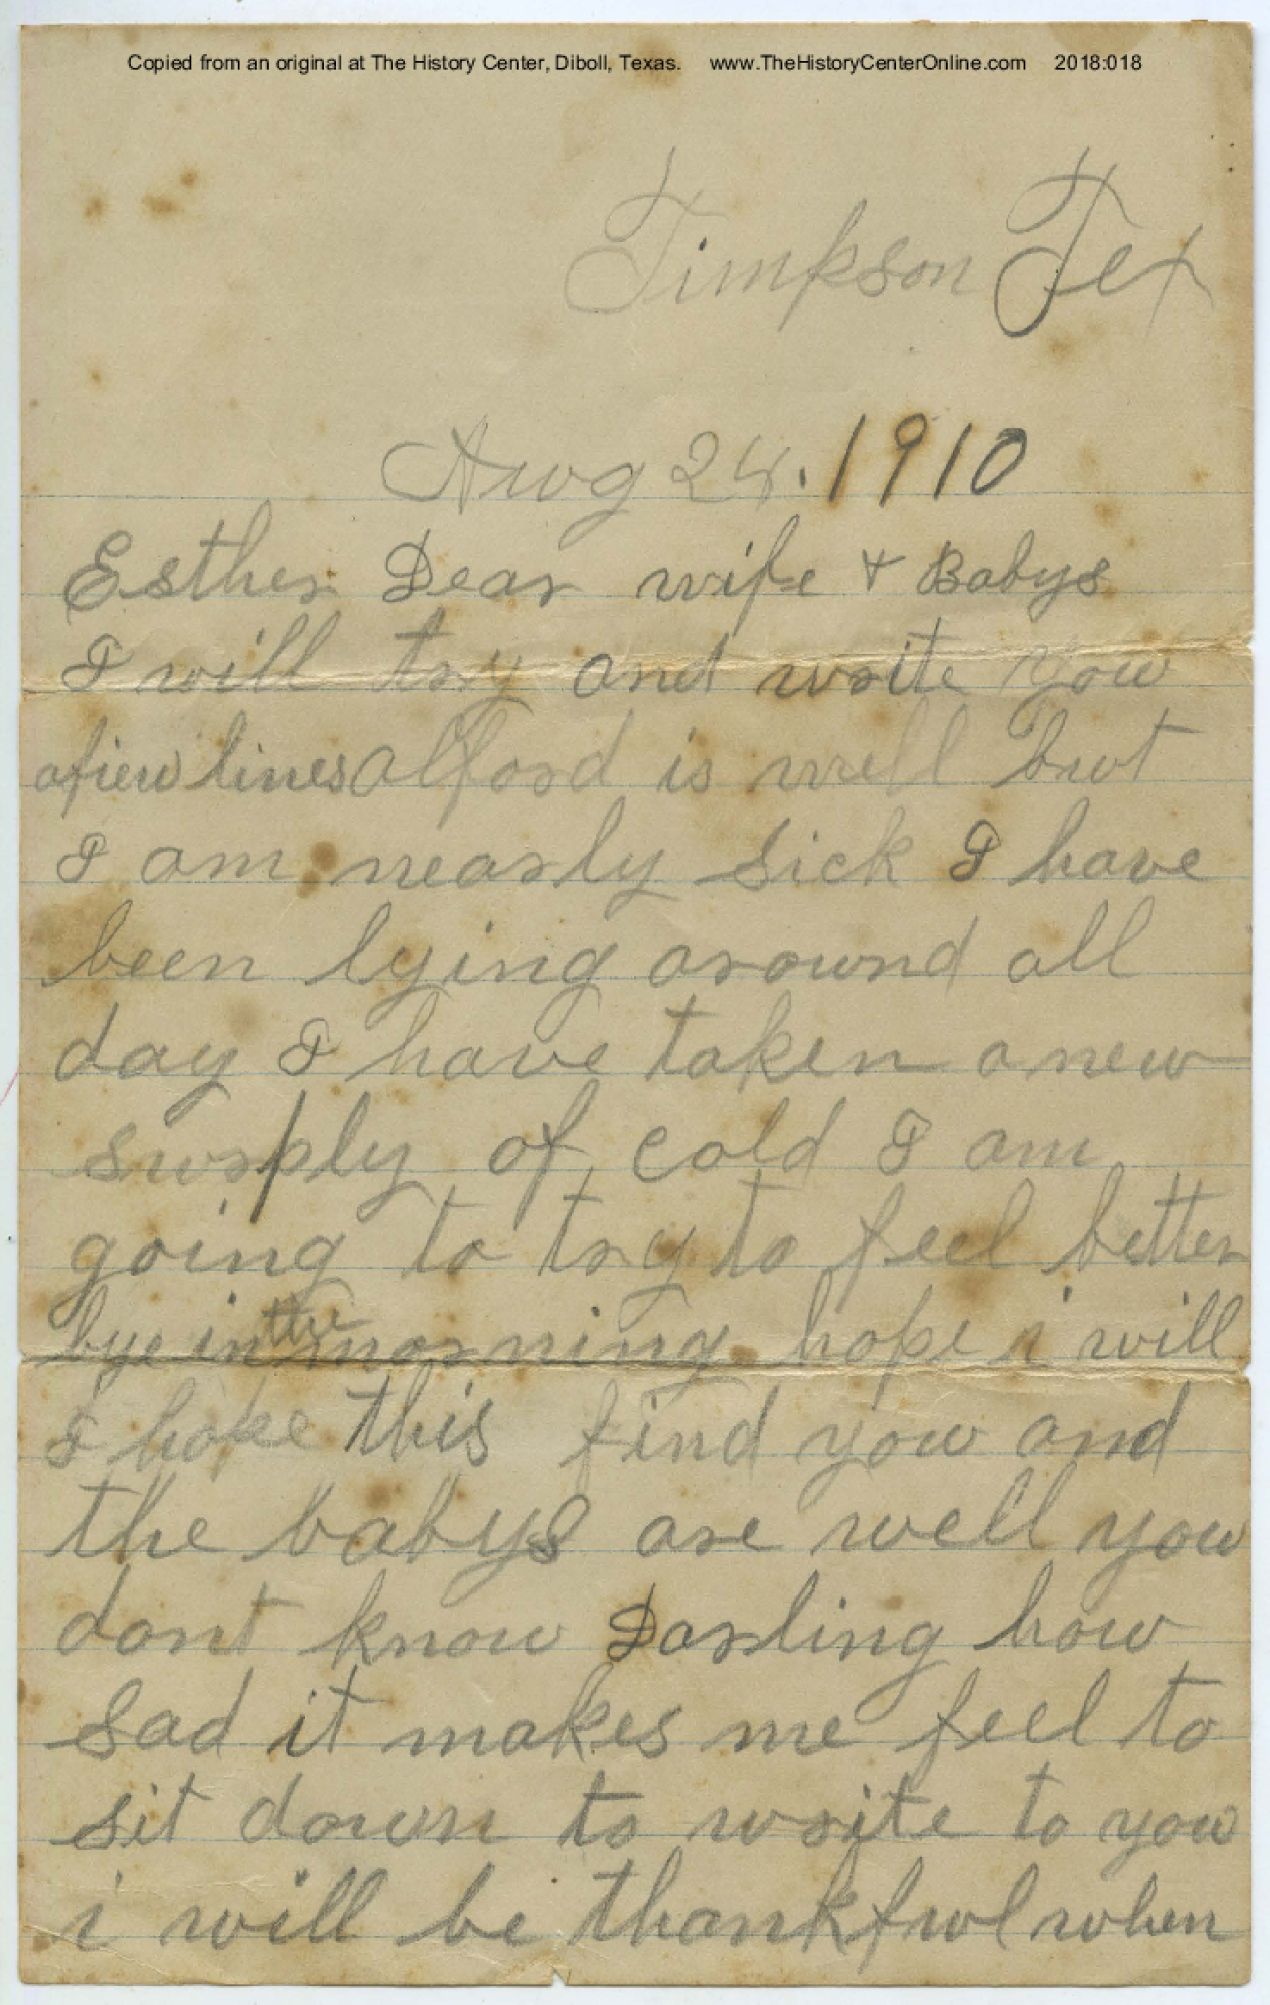 Copied from an original at The History Center, Diboll, Texas. www.TheHistoryCenterOnline.com 2018:018
Timpson Tex
Aug 24. 1910
Esther Dear wife + Babys
I will try and write you
a fiew lines Alford is well but
I am nearly sick I have
been lying around all
day I have taken a new
supply of cold I am
going to try to feel better
bye in the morning hope i will
I hope this find you and
the babys are well you
dont know Darling how
sad it makes me feel to
sit down to write to you
i will be thankful when